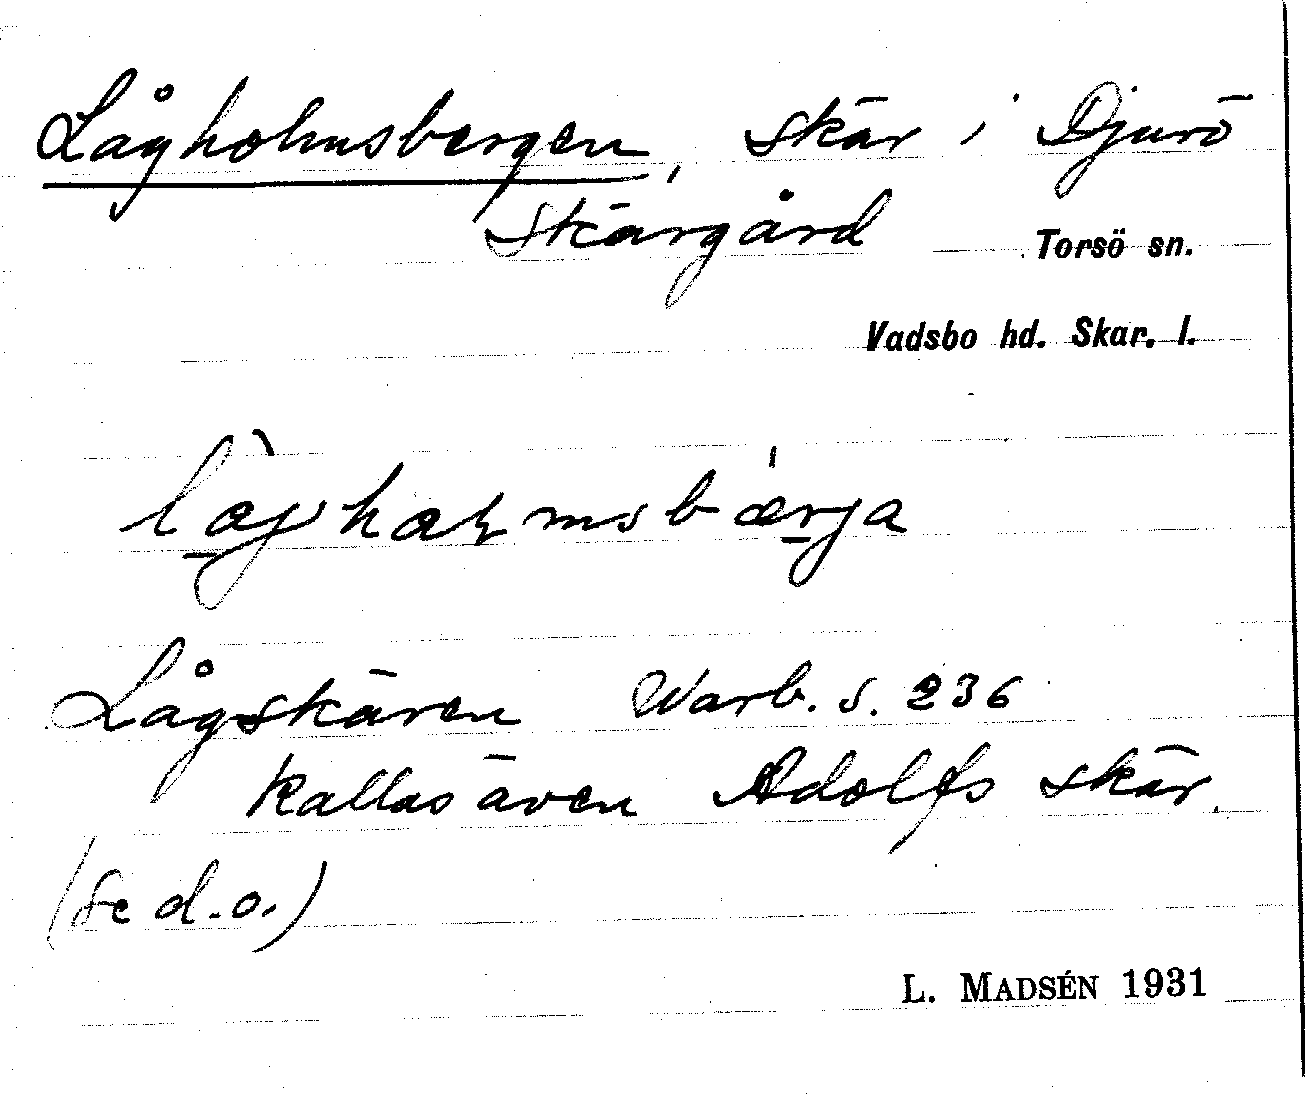 Lågholmsbergen, skär i Djurö
Skärgård
Torsö sn.
Vadsbo hd. Skar. l.
Lågskären Warb. s. 236
kallas även Adolfs skär.
(Se d.o.)
L. MADSÉN 1931